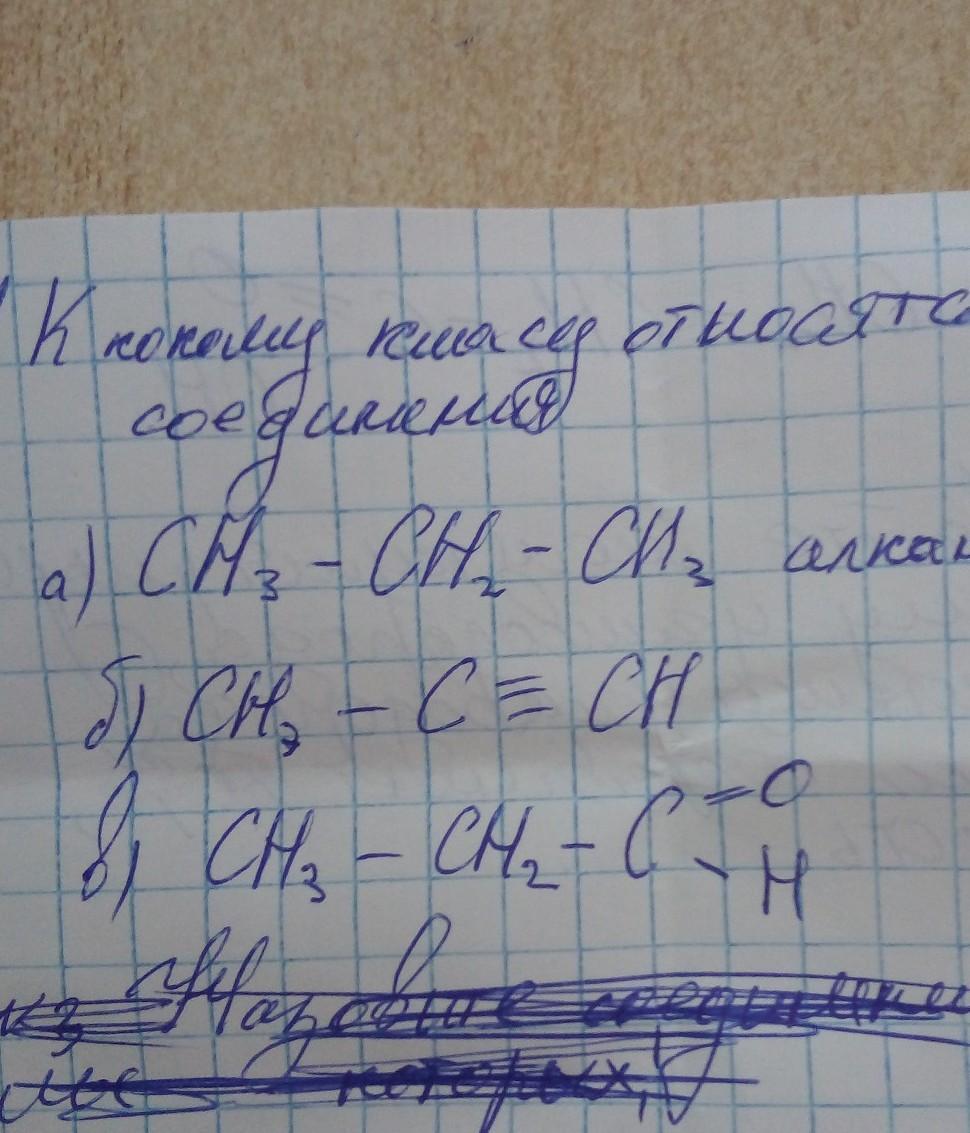 К какому классу относятс
соединения
а) CH₃ - CH₂ - CH₃ алкан
б) CH₃ - C ≡ CH
в) CH₃ - CH₂ - C = O
- H
Назовите соединени
которых,